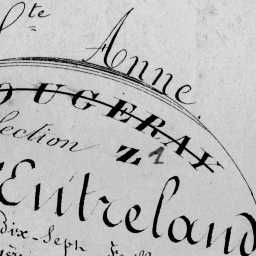 Ste Anne
OUGERAY
Section Z1
Entreland
dix-sept